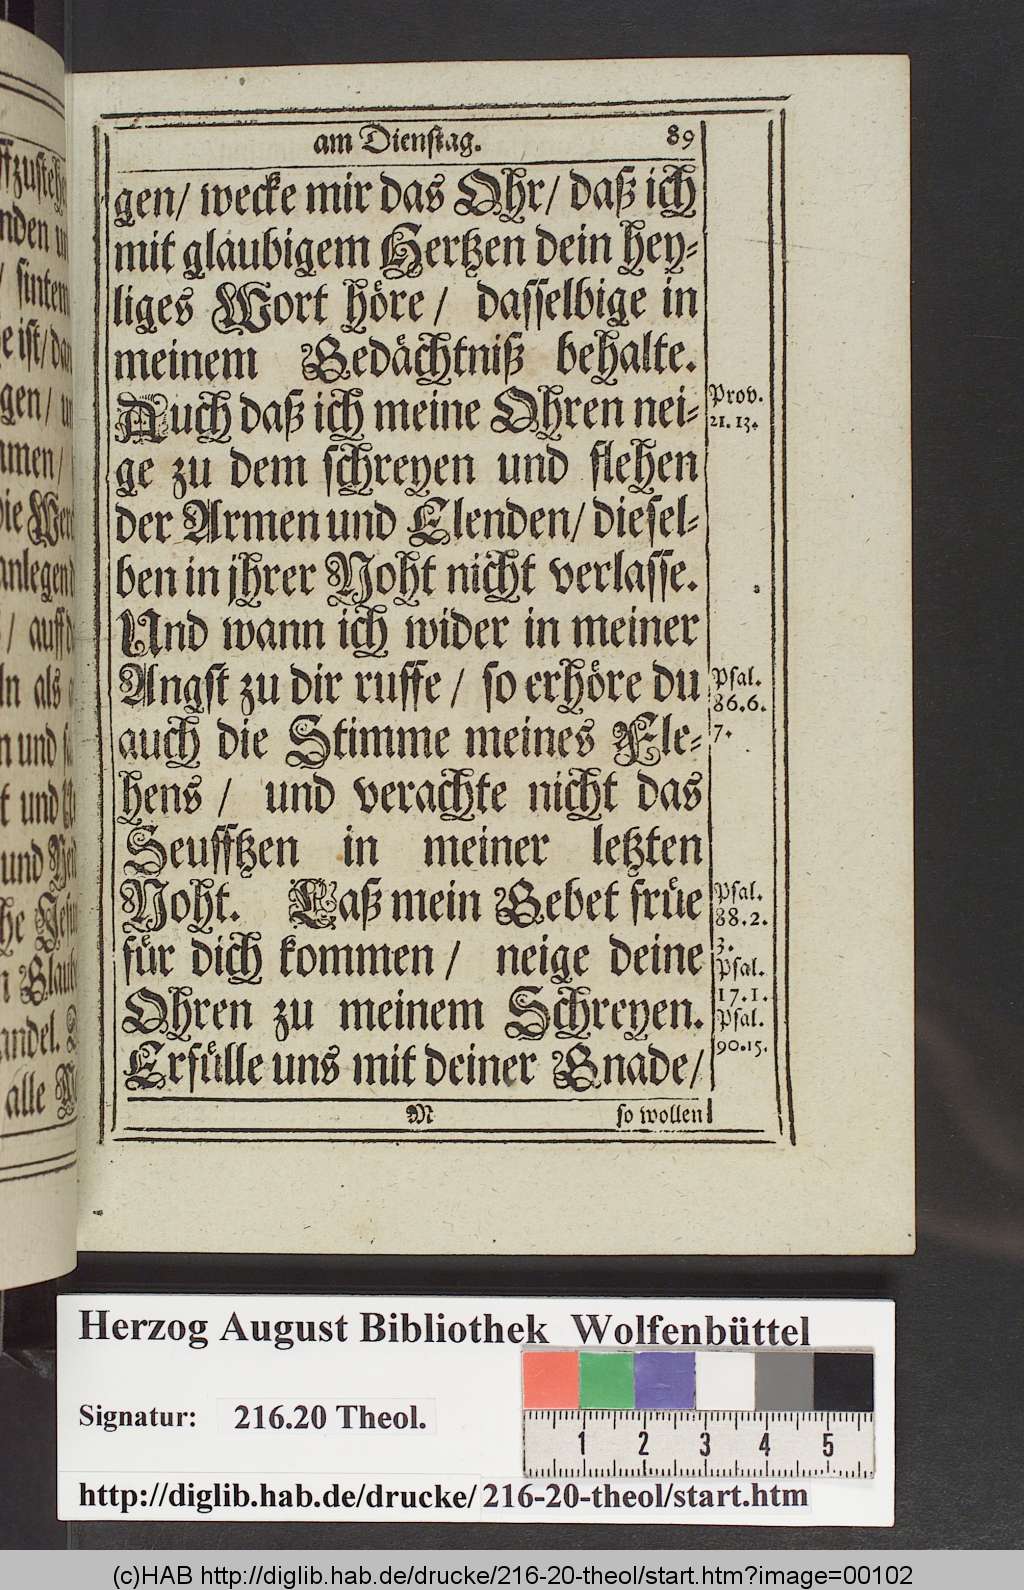 am Dienstag. 89
gen/ wecke mir das Ohr/ daß ich
mit glaubigem Hertzen dein hey-
liges Wort höre/ dasselbige in
meinem Gedächtniß behalte.
Auch daß ich meine Ohren nei-
ge zu dem schreyen und flehen
der Armen und Elenden/ diesel-
ben in jhrer Noht nicht verlasse.
Und wann ich wider in meiner
Angst zu dir ruffe/ so erhöre du
auch die Stimme meines Fle-
hens/ und verachte nicht das
Seufftzen in meiner letzten
Noht. Laß mein Gebet früe
für dich kommen/ neige deine
Ohren zu meinem Schreyen.
Erfülle uns mit deiner Gnade/
M so wollen
Prov.
21. 13.
Psal.
86. 6.
7.
Psal.
88. 2.
3.
Psal.
17. 1.
Psal.
90. 15.
Herzog August Bibliothek Wolfenbüttel
Signatur: 216.20 Theol.
1 2 3 4 5
http://diglib.hab.de/drucke/216-20-theol/start.htm
(c)HAB http://diglib.hab.de/drucke/216-20-theol/start.htm?image=00102